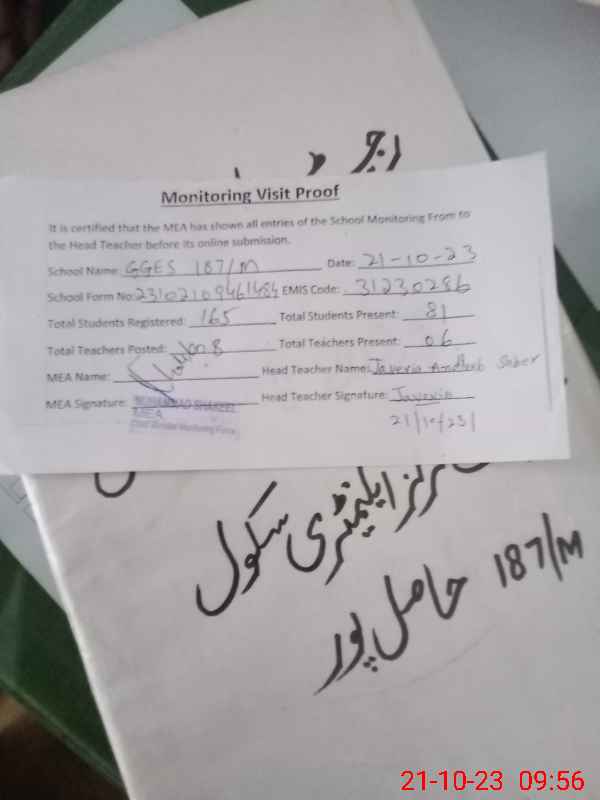 Monitoring Visit Proof
It is certified that the MEA has shown all entries of the School Monitoring From to
the Head Teacher before its online submission.
School Name: GGES 187/M Date: 21-10-23
School Form No: EMIS Code: 31230286
Total Students Registered: 165 Total Students Present: 81
Total Teachers Posted: 8 Total Teachers Present: 06
MEA Name: Head Teacher Name: Javeria
MEA Signature: MUHAMMAD SHAKEEL Head Teacher Signature: Javeria
MEA
21/10/23
ایلیمنٹری سکول
187/M حاصل پور
21-10-23 09:56